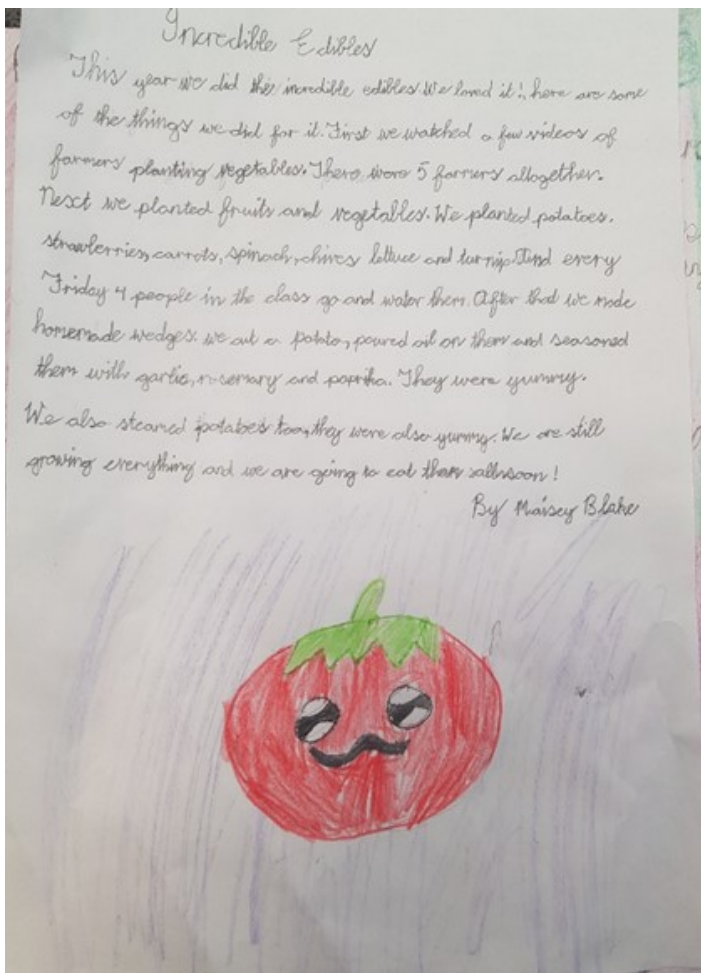 Incredible Edibles
This year we did the incredible edibles. We loved it! here are some
of the things we did for it. First we watched a few videos of
farmers planting vegetables. There were 5 farmers altogether.
Next we planted fruits and vegetables. We planted potatoes,
strawberries, carrots, spinach, chives lettuce and turnip. And every
Friday 4 people in the class go and water them. After that we made
homemade wedges. we cut a potato, poured oil on them and seasoned
them with garlic, rosemary and paprika. They were yummy.
We also steamed potatoes too, they were also yummy. We are still
growing everything and we are going to eat them all soon!
By Maisey Blake